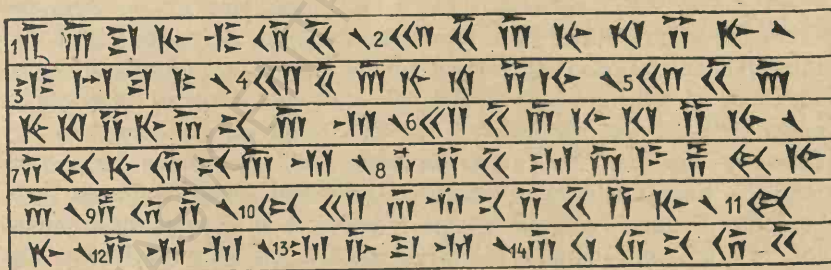 1 𐎭𐎠𐎼𐎹𐎺𐎢𐏁 𐏐 2 𐎧𐏁𐎠𐎹𐎰𐎡𐎹 𐏐
3 𐎺𐏀𐎼𐎣 𐏐 4 𐎧𐏁𐎠𐎹𐎰𐎡𐎹 𐏐 5 𐎧𐏁𐎠
𐎹𐎰𐎡𐎹𐎠𐎴𐎠𐎶 𐏐 6 𐎧𐏁𐎠𐎹𐎰𐎡𐎹 𐏐
7 𐎭𐏃𐎹𐎢𐎴𐎠𐎶 𐏐 8 𐎻𐎡𐏁𐎫𐎠𐎿𐎱𐏃𐎹
𐎠 𐏐 9 𐎱𐎢𐏂 𐏐 10 𐏃𐎧𐎠𐎶𐎴𐎡𐏁𐎡𐎹 𐏐 11 𐏃
𐎹 𐏐 12 𐎡𐎶𐎶 𐏐 13 𐎫𐎨𐎼𐎶 𐏐 14 𐎠𐎤𐎢𐎴𐎢𐏁